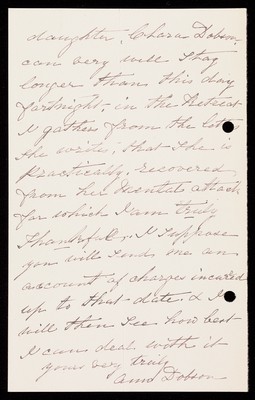 daughter, Clara Dobson.
can very well stay
longer than this day
fortnight, in the Retreat
I gather from the lett
she write, that she is
Practically, recovered
from her Mental attack
for which I am truly
Thankful, I suppose
you will send me an
account of charges incured
up to that date & I
will then see how best
I can deal with it
yours very truly
Dobson